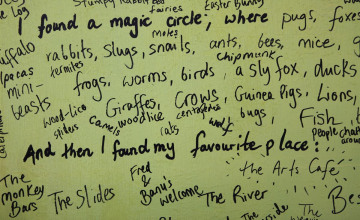 the Log
Stumpy Rabbit
fairies
Easter Bunnies
I found a magic circle; where pugs, foxes
moles
buffalo rabbits, slugs, snails, ants, bees, mice,
termites
chipmunk
alpacas
mini-beasts
frogs, worms, birds, a sly fox, ducks
woodlice
Giraffes, Crows, Guinea Pigs, Lions,
sliders
Camels
woodlice
centipedes
cats
wolf
bugs, Fish,
people
And then I found my favourite place:
the Arts Cafe
The Monkey Bars
The Slides
Fred & Banu's welcome
The River
The